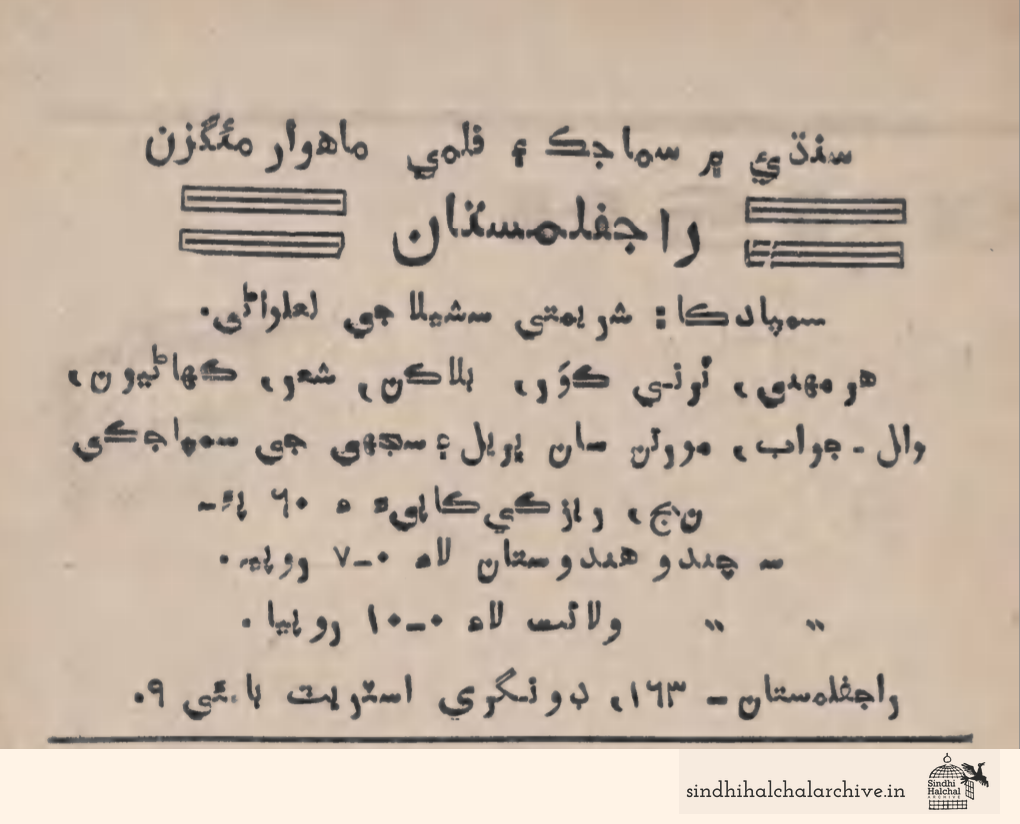 سنڌيءَ ۾ سماجڪ ۽ فلمي ماهوار مئگزن
راجفلمستان
سمپادڪا: شريمتي سشيلا جي لعلواڻي.
هر مهني، ڪَوَر، بلاڪن، شعر، ڪهاڻيون،
وال - جواب، مورتن سان ڀريل ۽ سڀهي جي سماجڪي
۶۰
چندو هندوستان لاءِ ۰-۷ روپيه.
" " ولائت لاءِ ۰-۱۰ روپيا.
راجفلمستان - ۱۶۳، ڊونگري اسٽريٽ بمبئي ۹.
sindhihalchalarchive.in
Sindhi
Halchal
ARCHIVE